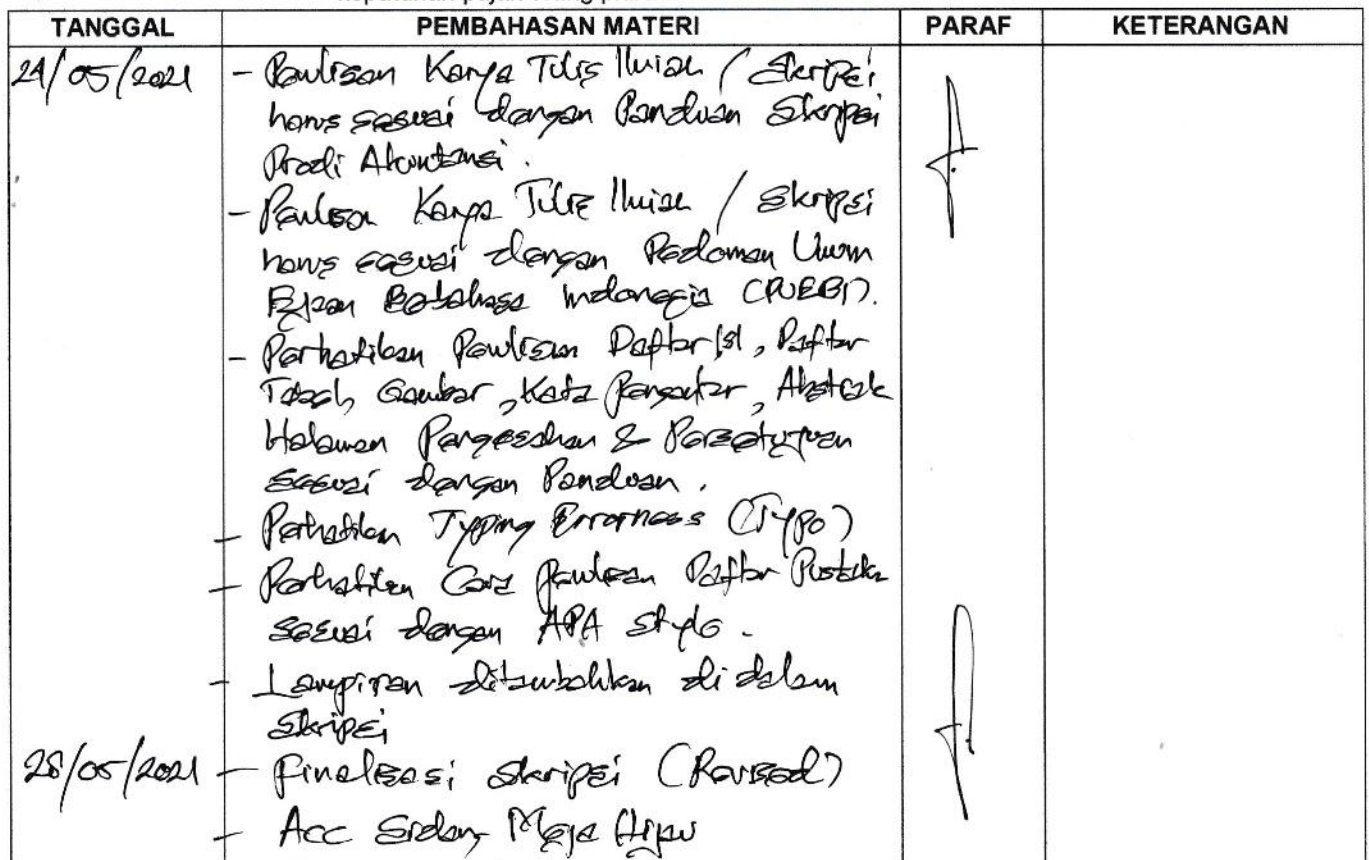 kepatuhan pajak orang
TANGGAL PEMBAHASAN MATERI PARAF KETERANGAN
24/05/2021 - Penulisan Karya Tulis Ilmiah / Skripsi
harus sesuai dengan Panduan Skripsi
Prodi Akuntansi.
- Penulisan Karya Tulis Ilmiah / Skripsi
harus sesuai dengan Pedoman Umum
Ejaan Bahasa Indonesia (PUEBI).
- Perhatikan Penulisan Daftar Isi, Daftar
Tabel, Gambar, Kata Pengantar, Abstrak
Halaman Pengesahan & Persetujuan
sesuai dengan Panduan.
- Perhatikan Typing Errorness (Typo)
- Perhatikan Cara Penulisan Daftar Pustaka
sesuai dengan APA Style.
- Lampiran ditambahkan di dalam
Skripsi
28/05/2021 - Finalisasi Skripsi (Revised)
- Acc Sidang Meja Hijau